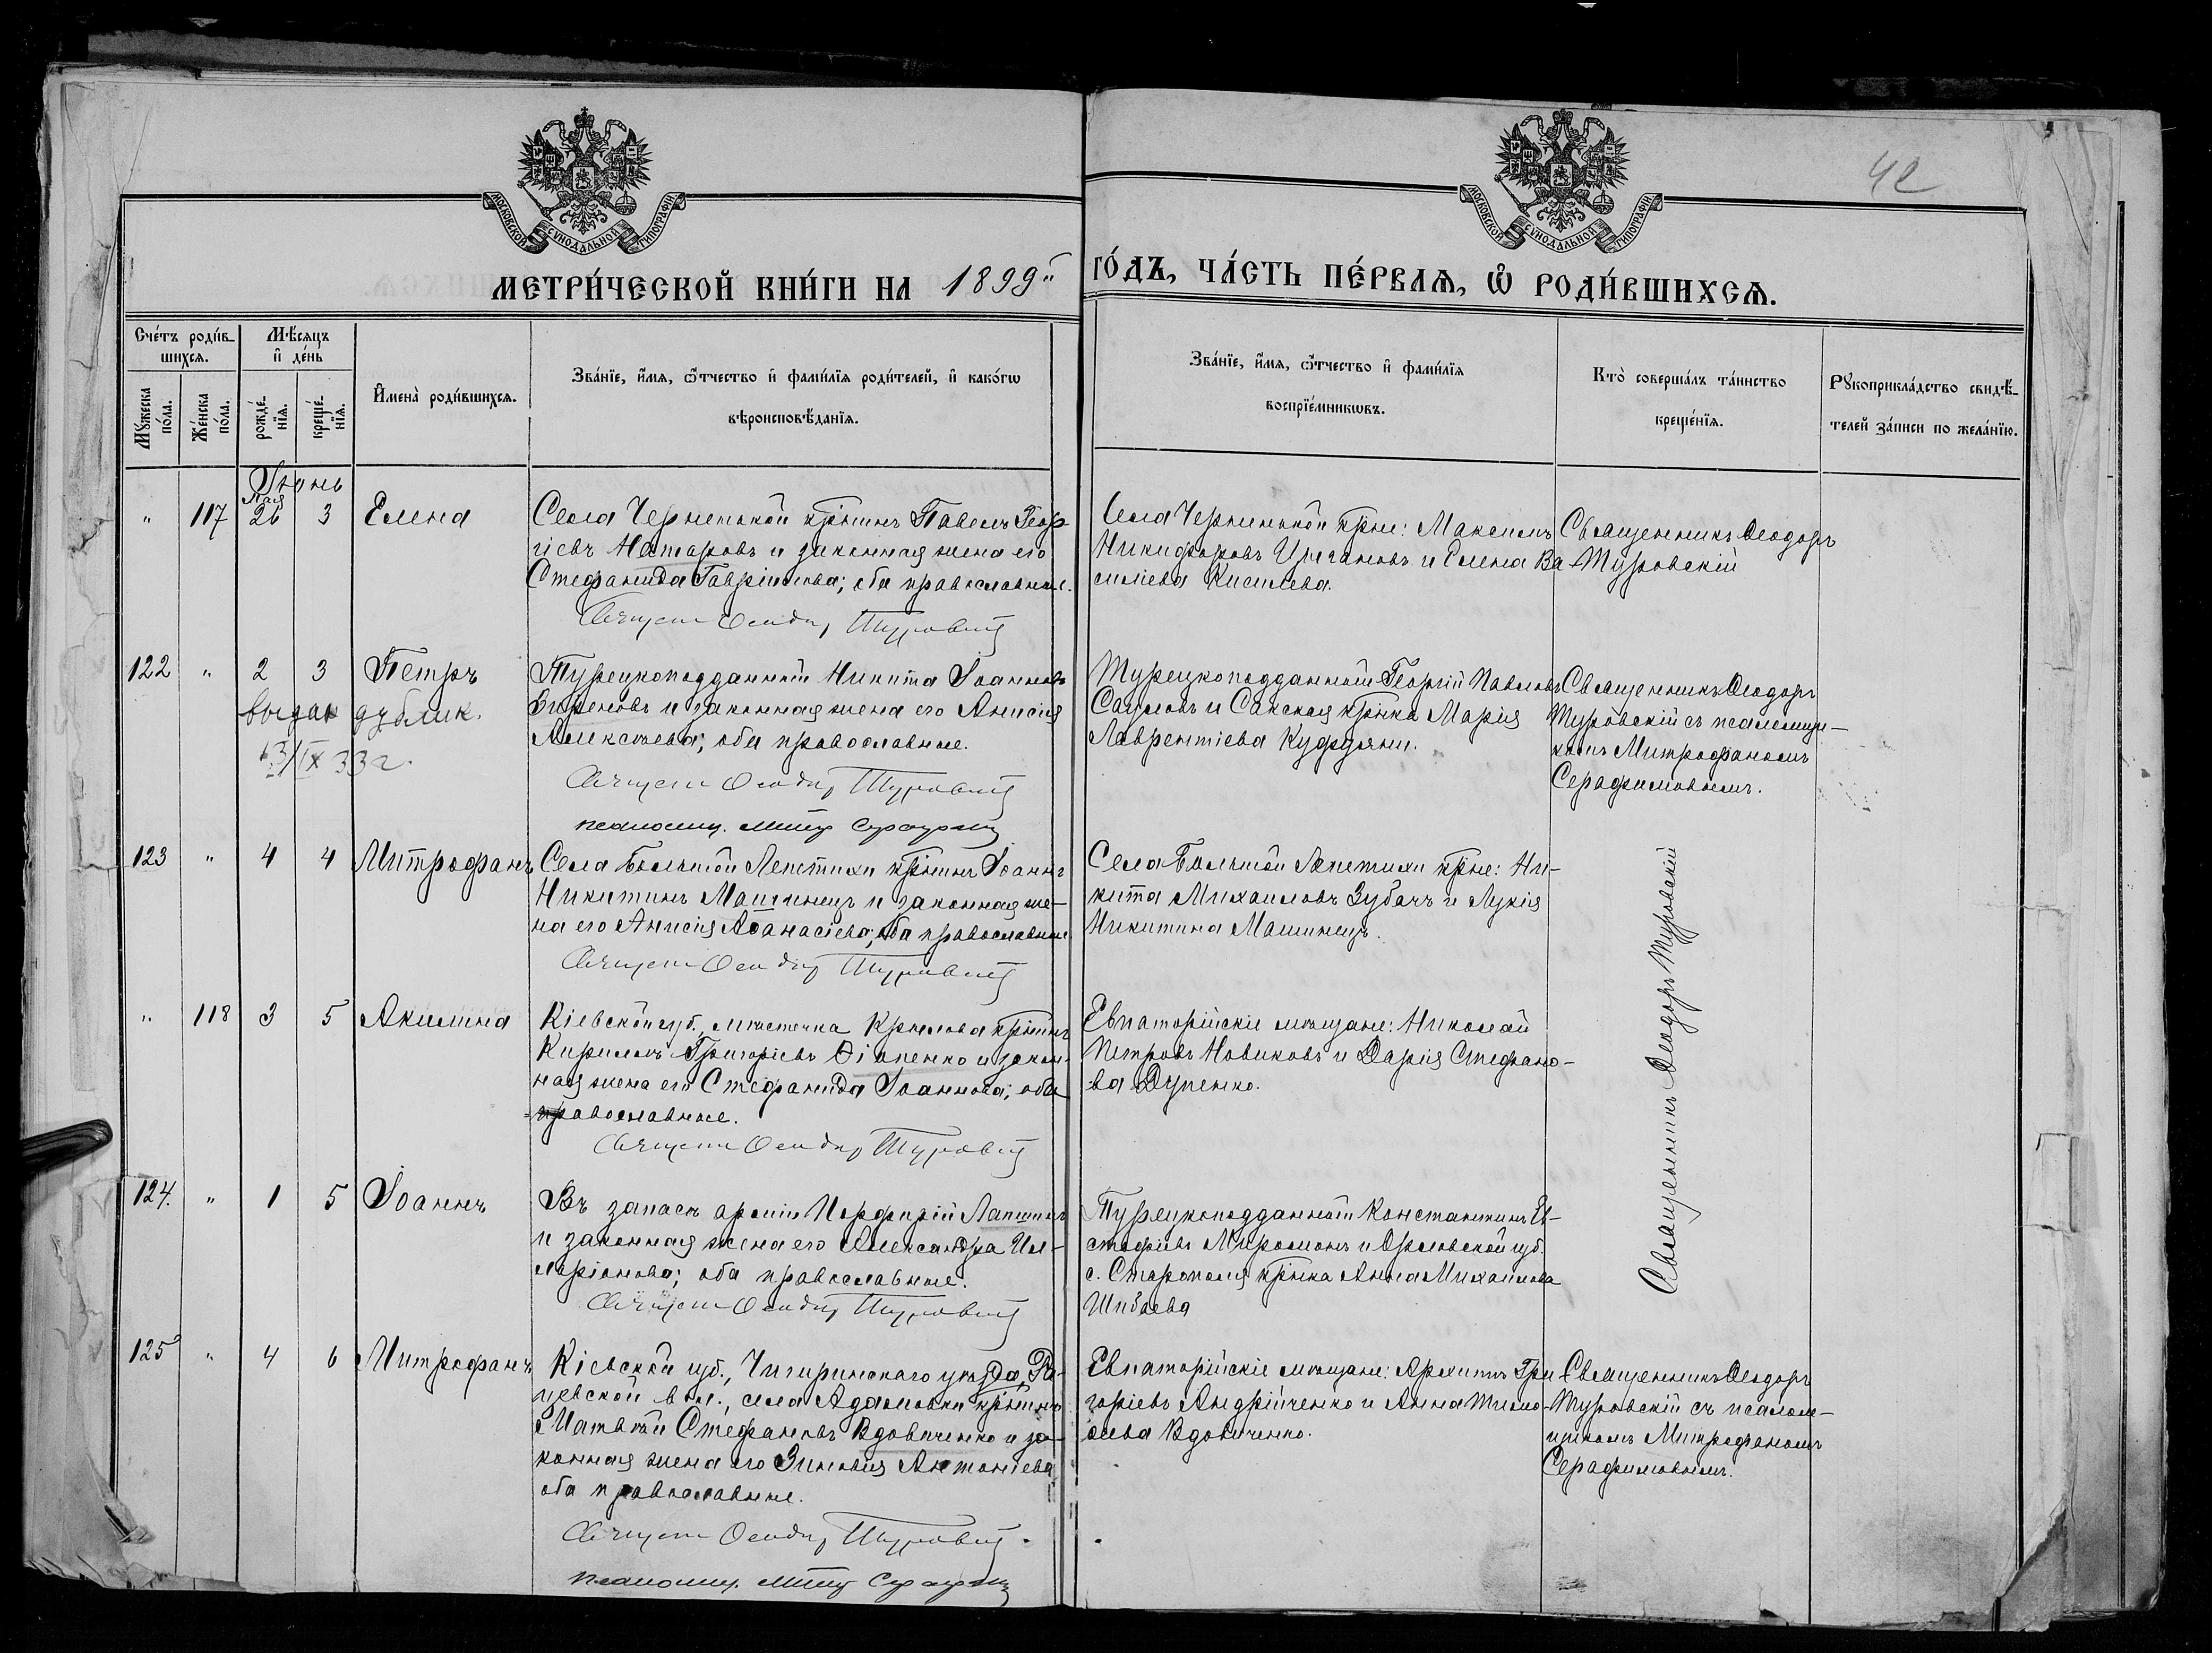 42
МОСКОВСКОЙ СѴНОДАЛЬНОЙ ТИПОГРАФІИ
МОСКОВСКОЙ СѴНОДАЛЬНОЙ ТИПОГРАФІИ
МЕТРИ́ЧЕСКОЙ КНИ́ГИ НА 1899й ГО́ДЪ, ЧА́СТЬ ПЕ́РВАѦ, Ѡ РОДИ́ВШИХСѦ.
Сче́тъ роди́в-
шихсѧ.
Мꙋ́жеска
по́ла.
Же́нска
по́ла.
Мѣ́сѧцъ
и҆ де́нь
рожде́-
нїѧ.
креще́-
нїѧ.
И҆мена̀ роди́вшихсѧ.
Зва́нїе, и҆́мѧ, ѻ҆́тчество и҆ фами́лїѧ роди́телей, и҆ како́гѡ
вѣроисповѣ́данїѧ.
Зва́нїе, и҆́мѧ, ѻ҆́тчество и҆ фами́лїѧ
воспрїе́мникѡвъ.
Кто̀ соверша́лъ та́инство
креще́нїѧ.
Рꙋкоприкла́дство свидѣ́-
телей за́писи по жела́нїю.
Іюнь
Мая
" 117 26 3 Елена
Села Черненькой кр͠нинъ Павелъ Геор-
гіевъ Натаровъ и законная жена его
Стефанида Гавріилова; оба православные.
Священ Ѳеодоръ Туровскій
Села Черненькой кр͠не: Максимъ
Никифоровъ и Елена Ва-
силіева Киселева.
Священникъ Ѳеодоръ
Туровскій
122 " 2 3 Петръ
выдан дублик.
13/IX 33 г.
Турецкоподданный Никита Іоанновъ
и законная жена его Анисія
Алексѣева; оба православные.
Священ Ѳеодоръ Туровскій
псаломщ. Митр Серафим
Турецкоподданный Георгій Павловъ
Саумовъ и Сакская кр͠нка Марія
Лаврентіева
Священникъ Ѳеодоръ
Туровскій съ псаломщи-
комъ Митрофаномъ
Серафимовымъ.
123 " 4 4 Митрофанъ
Села Большой Лепетихи кр͠нинъ Іоаннъ
Никитинъ Машинецъ и законная же-
на его Анисія Аѳанасіева; оба православные
Священ Ѳеодоръ Туровскій
Села Большой Лепетихи кр͠не: Ни-
кита Михаиловъ Зубачъ и Лукія
Никитина Машинецъ.
Священникъ Ѳеодоръ Туровскій
" 118 3 5 Акилина
Кіевской губ., мѣстечка Крылова кр͠нинъ
Кириллъ Григоріевъ Ѳіяненко и закон-
ная жена его Стефанида Іоаннова; оба
православные.
Священ Ѳеодоръ Туровскій
Евпаторійскіе мѣщане: Николай
Петровъ Новиковъ и Дарія Стефано-
ва Дуненко.
124. " 1 5 Іоаннъ
Въ запасѣ арміи Порфирій Лапшинъ
и законная жена его Александра Ил-
ларіонова; оба православные.
Священ Ѳеодоръ Туровскій
Турецкоподданный Константинъ Ев-
стафіевъ и Орловской губ.
с. Старополя кр͠нка Анна Михаилова
Шибаева
125 " 4 6 Митрофанъ
Кіевской губ., Чигиринскаго уѣзда, Ра-
цевской вол., села Адамовки кр͠нинъ
Матвѣй Стефановъ Вдовиченко и за-
конная жена его Зиновія Антоніева
оба православные.
Священ Ѳеодоръ Туровскій.
псаломщ. Митр Серафим
Евпаторійскіе мѣщане: Архипъ Гри-
горіевъ Андрійченко и Анна Тимо-
ѳеева Вдовиченко.
Священникъ Ѳеодоръ
Туровскій съ псалом-
щикомъ Митрофаномъ
Серафимовымъ.